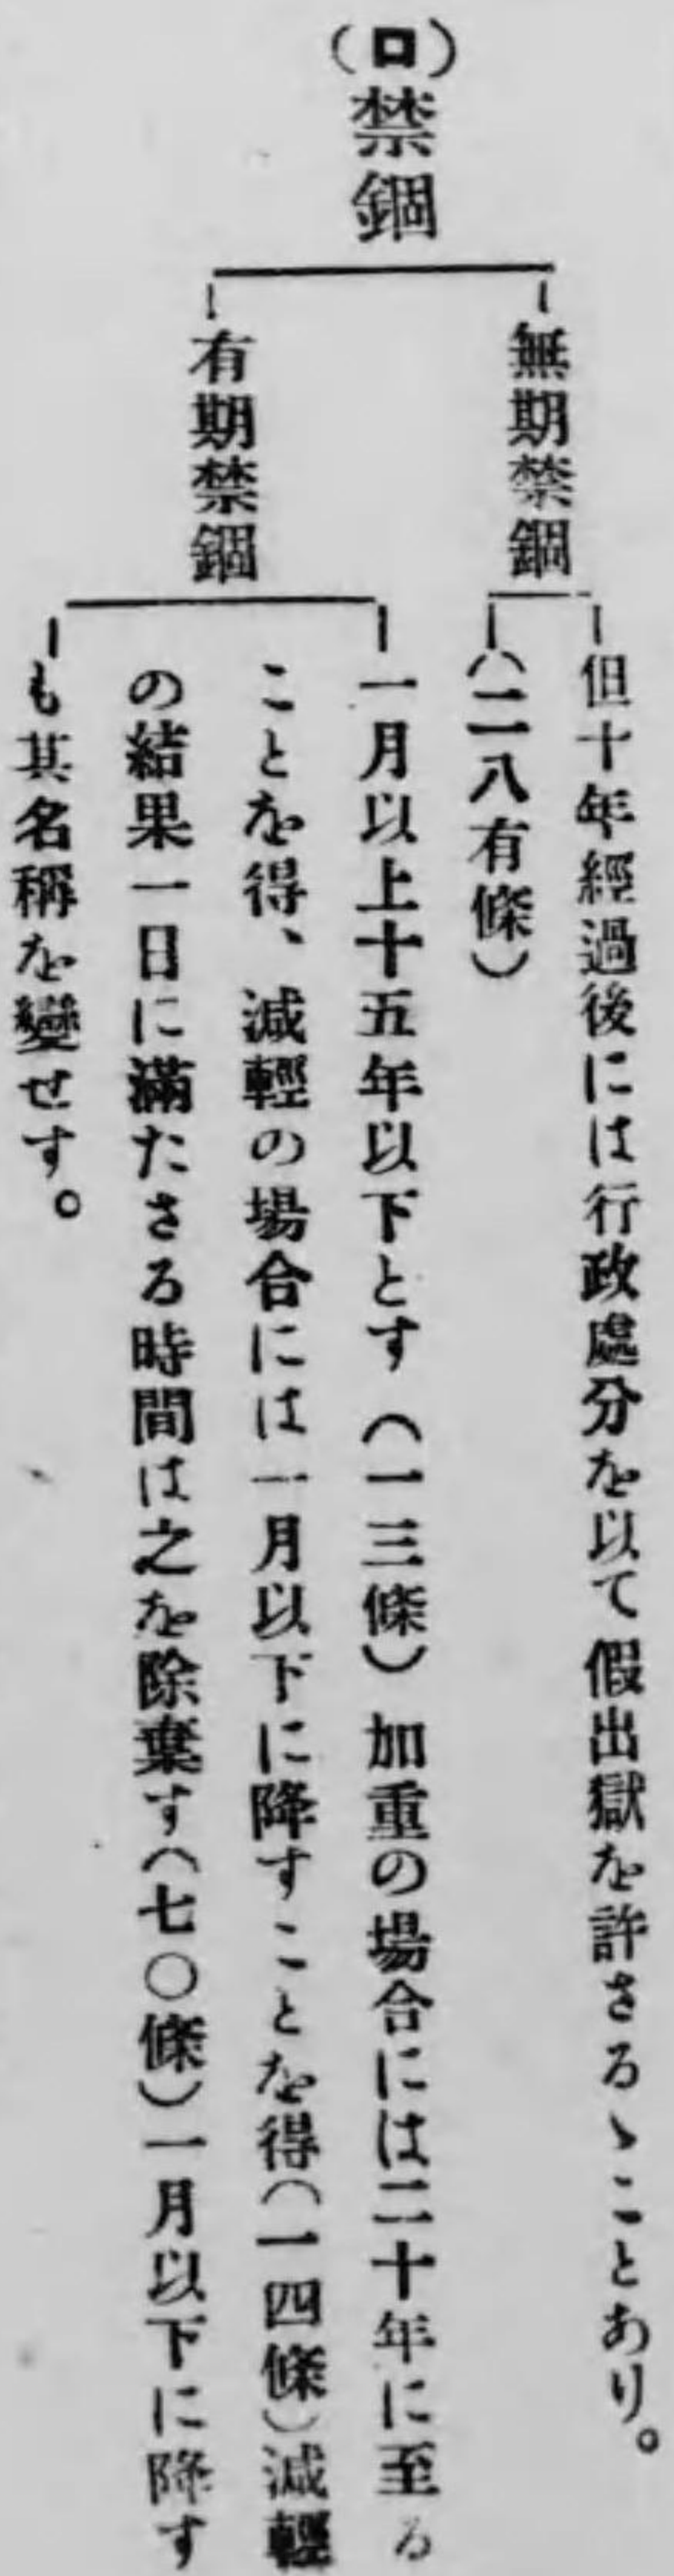 (ロ)禁錮
無期禁錮
但十年經過後には行政處分を以て假出獄を許さるゝことあり。
(二八有條)
有期禁錮
一月以上十五年以下とす(一三條)加重の場合には二十年に至る
ことを得、減輕の場合には一月以下に降すことを得(一四條)減輕
の結果一日に滿たさる時間は之を除棄す(七〇條)一月以下に降す
も其名稱を變せす。